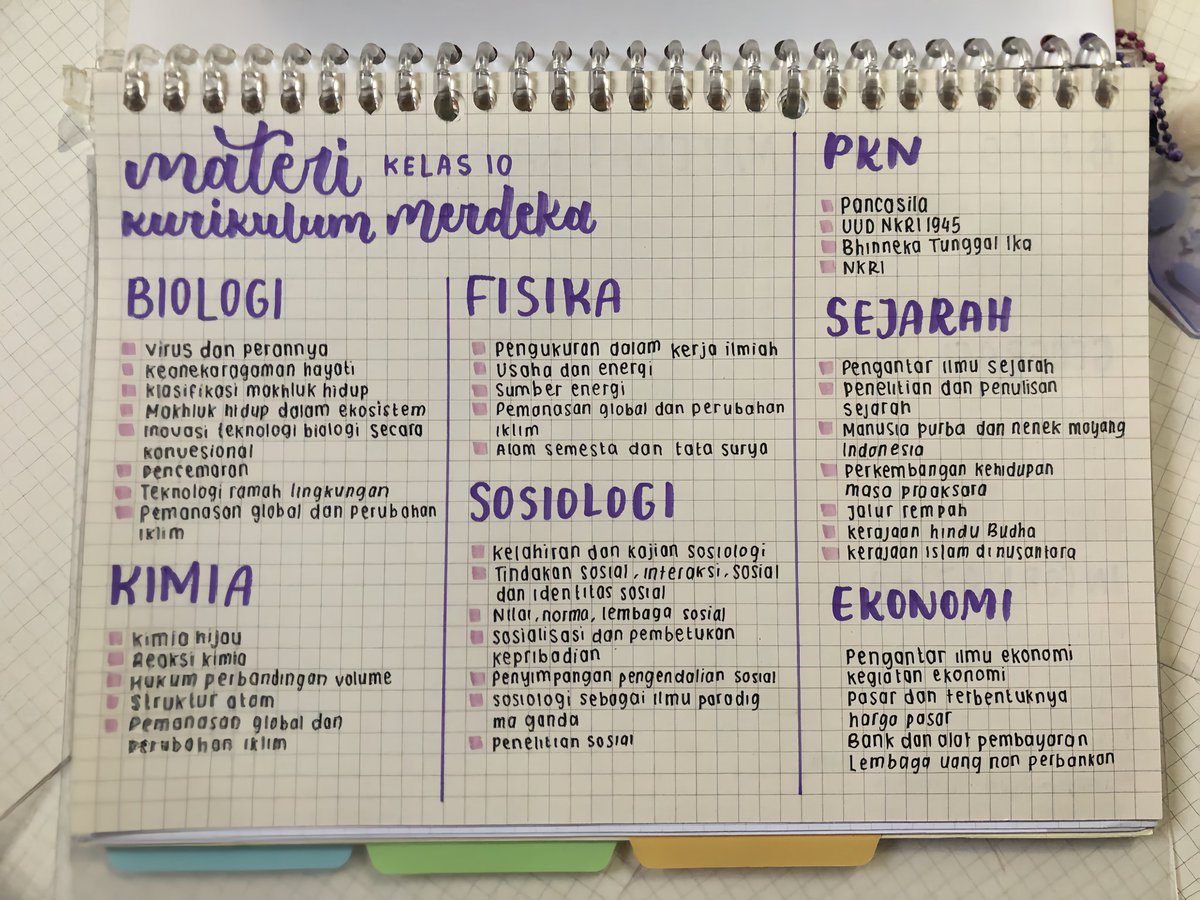 materi KELAS 10
kurikulum merdeka
BIOLOGI
Virus dan perannya
Keanekaragaman hayati
klasifikasi makhluk hidup
Makhluk hidup dalam ekosistem
Inovasi teknologi biologi secara
konvesional
pencemaran
Teknologi ramah lingkungan
Pemanasan global dan perubahan
iklim
KIMIA
kimia hijau
Reaksi kimia
Hukum perbandingan volume
Struktur atom
Pemanasan global dan
perubahan iklim
FISIKA
Pengukuran dalam kerja ilmiah
Usaha dan energi
Sumber energi
Pemanasan global dan perubahan
iklim
Alam semesta dan tata surya
SOSIOLOGI
Kelahiran dan kajian sosiologi
Tindakan sosial, interaksi, sosial
dan identitas sosial
Nilai, norma, lembaga sosial
sosialisasi dan pembetukan
kepribadian
Penyimpangan pengendalian sosial
sosiologi sebagai ilmu paradig
ma ganda
penelitian sosial
PKN
Pancasila
UUD NKRI 1945
Bhinneka Tunggal Ika
NKRI
SEJARAH
Pengantar ilmu sejarah
penelitian dan penulisan
sejarah
Manusia purba dan nenek moyang
Indonesia
perkembangan kehidupan
masa praaksara
jalur rempah
kerajaan hindu Budha
kerajaan islam di nusantara
EKONOMI
Pengantar ilmu ekonomi
kegiatan ekonomi
pasar dan terbentuknya
harga pasar
Bank dan alat pembayaran
Lembaga uang non perbankan